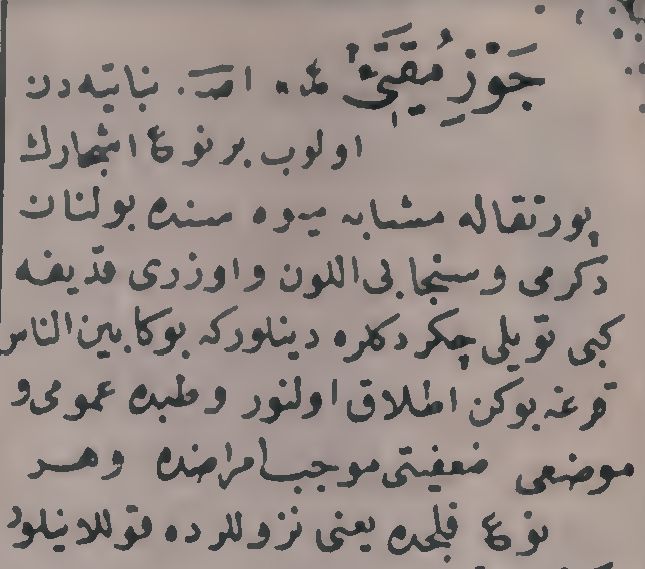 جَوْزِ مُقَیِّئ مدہ اسد. نباتیه دن
اولوب بر نوع اشجارك
پورتقاله مشابه میوه سنده بولنان
دكرمی و سنجابی اللون و اوزری قدیفه
كبی تویلی چكردكلره دینلوركه بوكا بین الناس
قرغه بوكن اطلاق اولنور و طبده عمومی و
موضعی ضعفیتی موجب امراضده و هر
نوع فلجده یعنی نزوللرده قوللانیلور